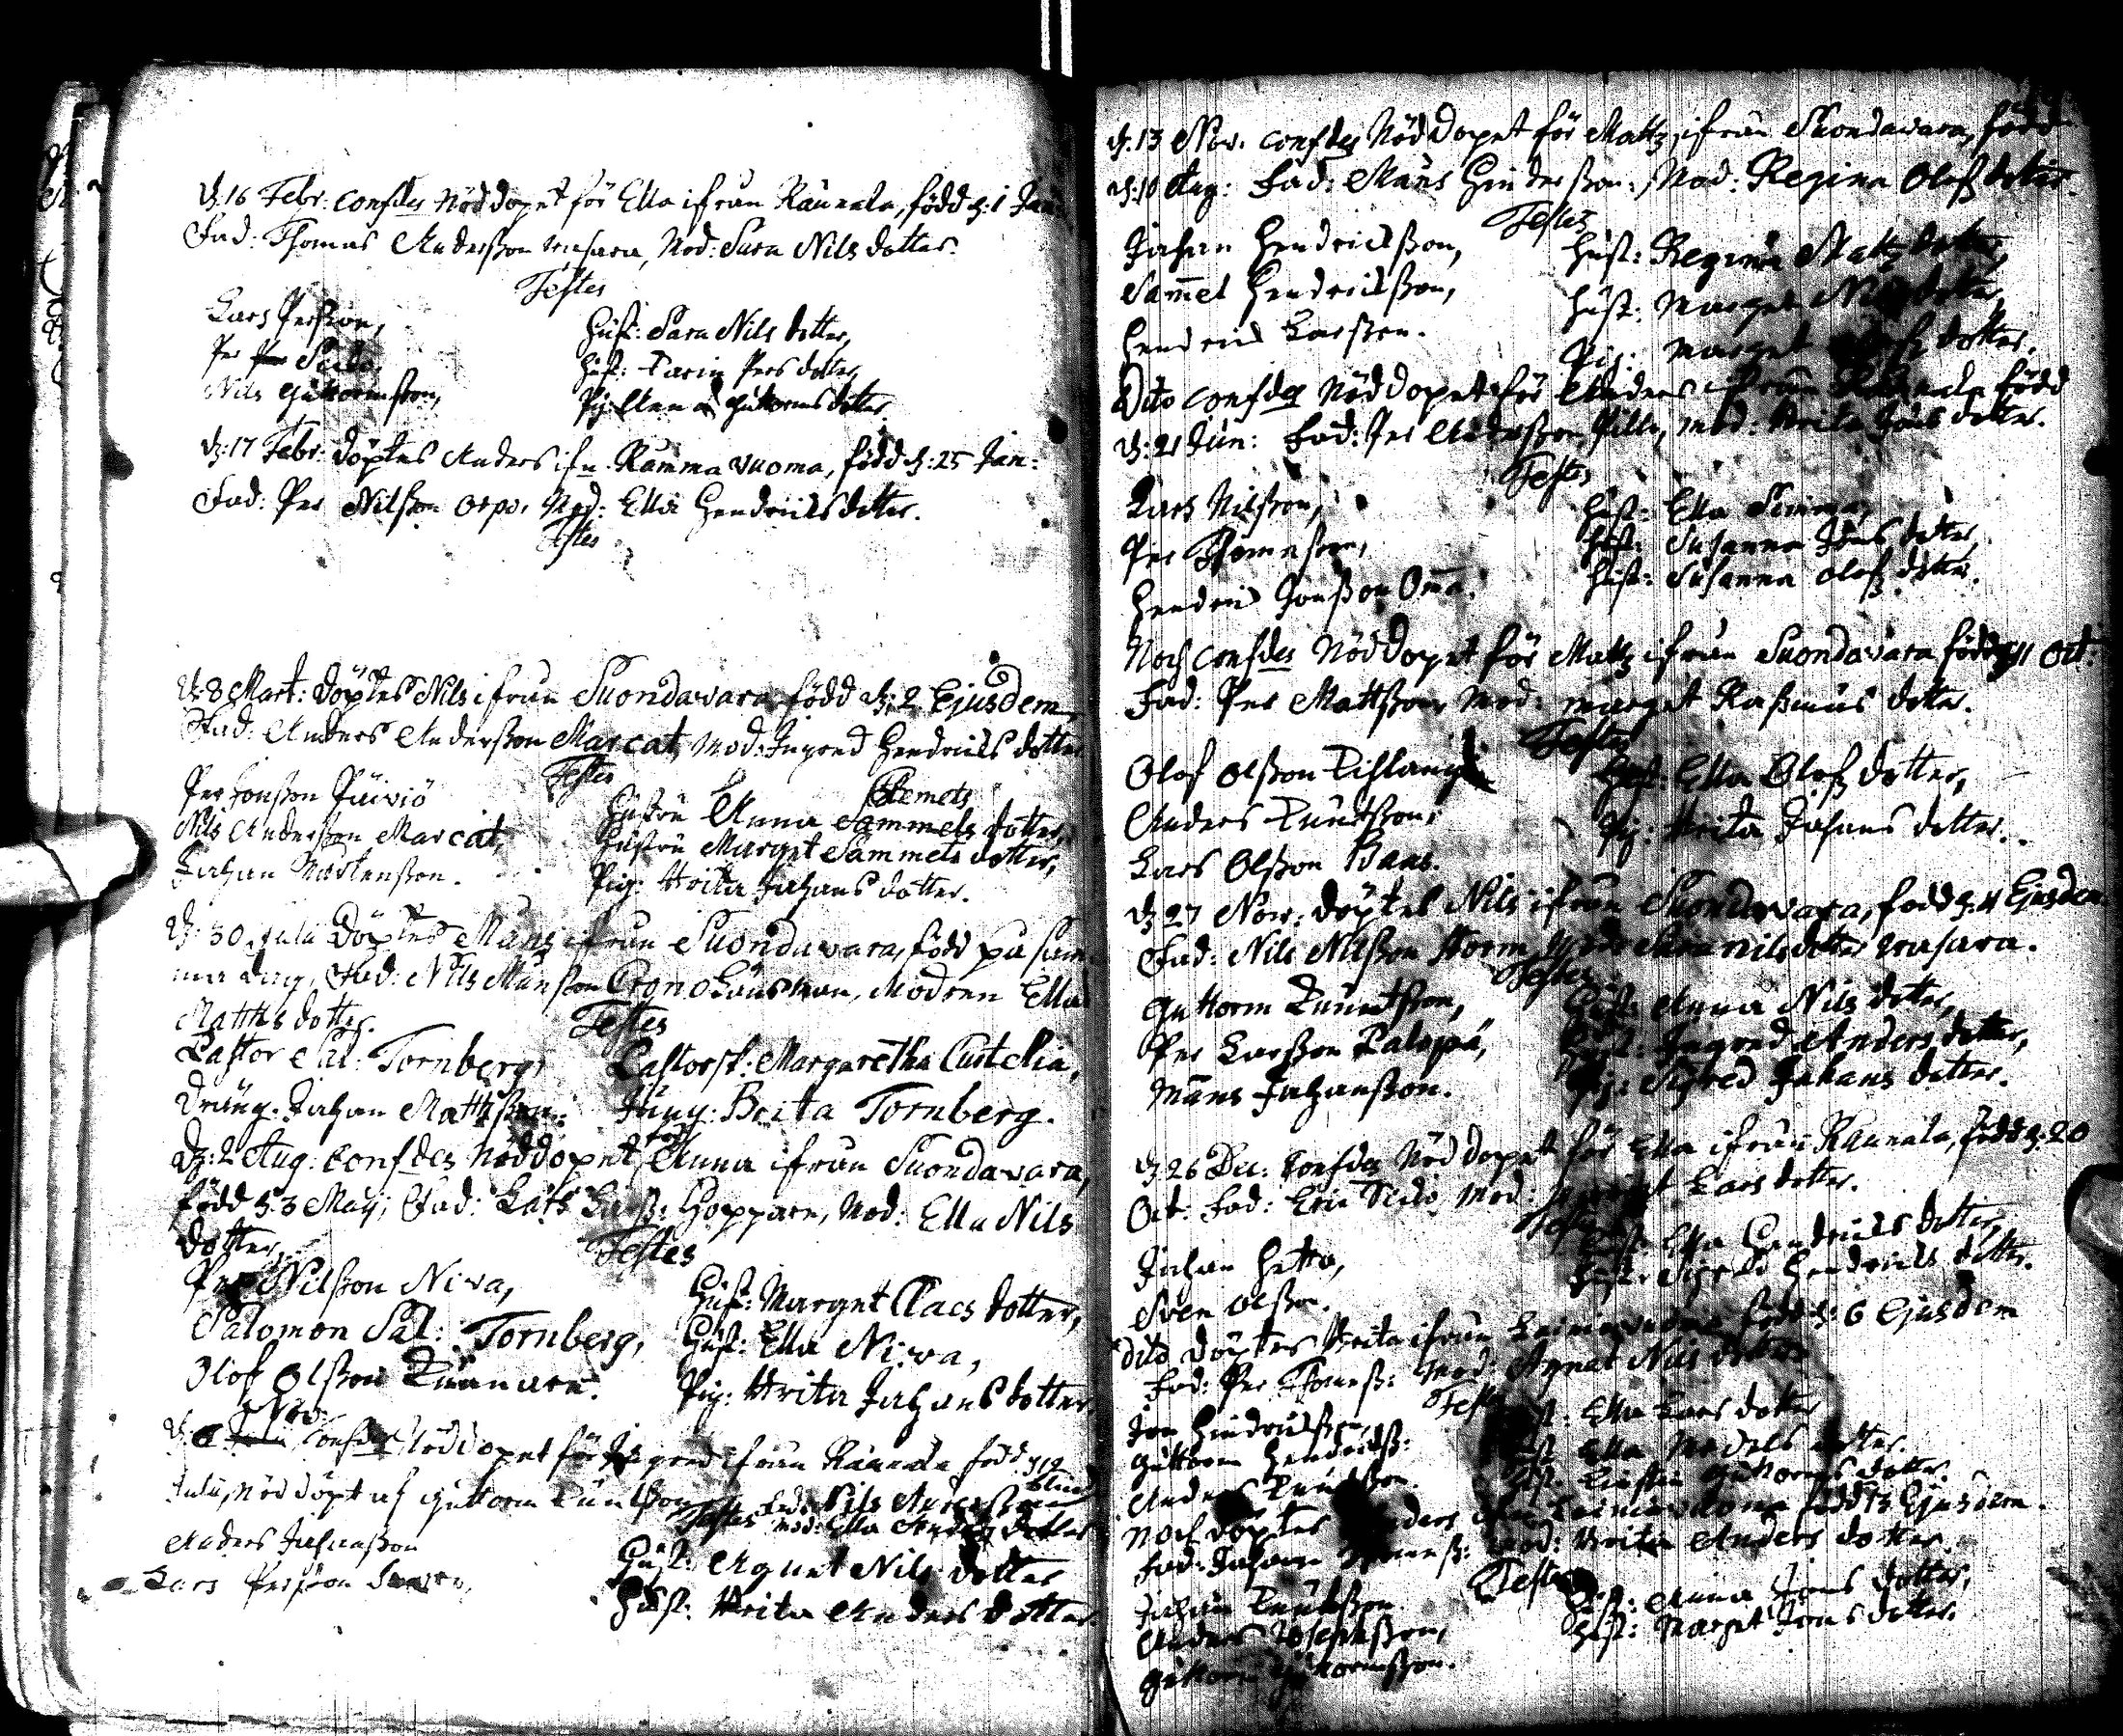 d: 16 Febr: confdes Nöddopet för Ella ifrån Raunala, född d: 1 Jan:
Fad: Thomas Andersson Wasara, Mod: Sara Nils dotter.
Testes
Lars Persson,
Per Seido
Nils Guttormsson,
Hust: Sara Nils dotter,
Hust: Karin Pers dotter,
Pig: Anna Guttorms dotter
d: 17 Febr: döptes Anders ifn Rammavuoma, född d: 25 Jan:
Fad: Per Nilsson Orpo, Mod: Ella Hendricks dotter.
Testes
d: 8 Mart: döptes Nils ifrån Suondavara född d: 2 Ejusdem,
Fad: Anders Andersson Marcat, Mod: Ingred Hendricks dotter
Testes
Per Jonsson Päiviö
Nils Andersson Marcat,
Johan Mårtensson.
Clemets
Hustru Anna Sammels dotter,
Hustru Marget Sammels dotter,
Pig: Brita Johans dotter.
d: 30 Julii Döptes Måns ifrån Suondavara, född på sam-
ma dag, Fad: Nils Månsson Crono Länsman, Modren Ella
Matths dotter.
Testes
Pastor Sal: Tornberg,
Dräng: Johan Mattsson.
Pastorsk: Margaretha Curtelia,
Jung: Brita Tornberg.
d: 2 Aug: confdes nöddopet för Anna ifrån Suondavara,
född d: 3 Maij; Fad: Lars Larss: Hoppare, Mod: Ella Nils
dotter,
Testes
Per Nilsson Niva,
Salomon Sal: Tornberg,
Olof Olsson
Hust: Marget Claes dotter,
Hust: Ella Niva,
Pig: Brita Johans dotter.
Nov:
confdes Nöddopet för Ingred ifrån Raunala född d: 12
Julii, Nöddöpt af Guttorm Knutsson Fad: Nils Andersson Blind
Testes Mod: Ella Anders dotter
Anders Johansson
Lars Persson
Hust: Agnet Nils dotter
Hust: Brita Anders dotter.
d: 13 Nov: confdes Nöddopet för Mattz ifrån Suondavara, född
d: 10 Aug: Fad: Måns Hindersson, Mod: Regina Olofs dotter.
Testes
Johan Hendricksson,
Sammel Hendricksson,
Hendrick Larsson.
Hust: Regina Mattz dotter,
Hust: Marget Nils dotter,
Pig: Marget dotter.
Dito confdes Nöddopet för Anders ifrån född
d: 21 Jun: Fad: Per Andersson Pilto, Mod: Brita Jöns dotter.
Testes
Lars Nilsson,
Per Thomasson,
Hendrick Jonsson Omma.
Hust: Ella Simma,
Hust: Susanna Jöns dotter,
Hust: Susanna Olofs dotter.
Noch confdes Nöddopet för Mattz ifrån Suondavara född d: 11 Oct:
Fad: Per Mattsson, Mod: Marget Rasmus dotter.
Testes
Olof Olsson
Anders Knutsson,
Lars Olsson Baas.
Hust: Ella Olofs dotter,
Pig: Brita Johans dotter.
d: 27 Nov: döptes Nils ifrån Suondavara, född d: 11 Ejusdem
Fad: Nils Nilsson Korm, Mod: Nils dotter Wasara.
Testes
Guttorm Knutsson,
Per Larsson Palopä,
Måns Johansson.
Hust: Anna Nils dotter,
Hust: Ingred Anders dotter,
Pig: Sigred Johans dotter.
d: 26 Dec: confdes Nöddopet för Ella ifrån Raunala, född d: 20
Oct: Fad: Eric Seido Mod: Marget Lars dotter.
Testes
Johan Hetta,
Sven Olsson.
Hust: Ella Hendricks dotter,
Hust: Sigred Hendricks dotter.
Dito döptes Brita ifrån född d: 6 Ejusdem
Fad: Per Thomss: Mod: Agnet Nils dotter
Testes
Jon Hindricksson,
Guttorm Hendrickss:
Anders Knutsson.
Hust: Ella Lars dotter
Hust: Ella dotter.
Hust: Kirstin Guttorms dotter.
Noch döptes Anders född d: 13 Ejusdem.
Fad: Johan Mod: Brita Anders dotter.
Testes
Johan Knutsson.
Anders Josephsson,
Guttorm Guttormsson.
Hust: Anna Jöns dotter,
Hust: Marget Jöns dotter.